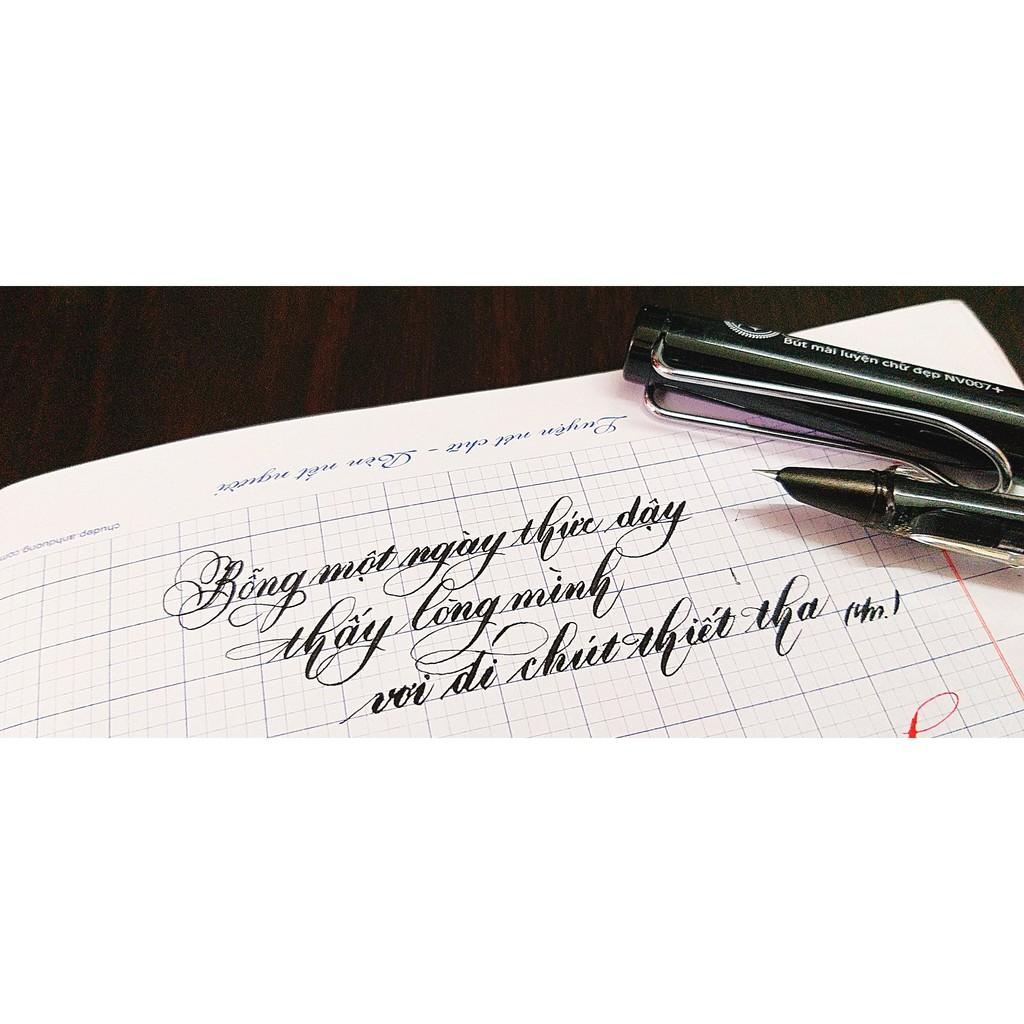 Bút mài luyện chữ đẹp NV007+
Luyện nét chữ - Rèn nết người
chudep.anhduong.com
Bỗng một ngày thức dậy
thấy lòng mình
vơi đi chút thiết tha